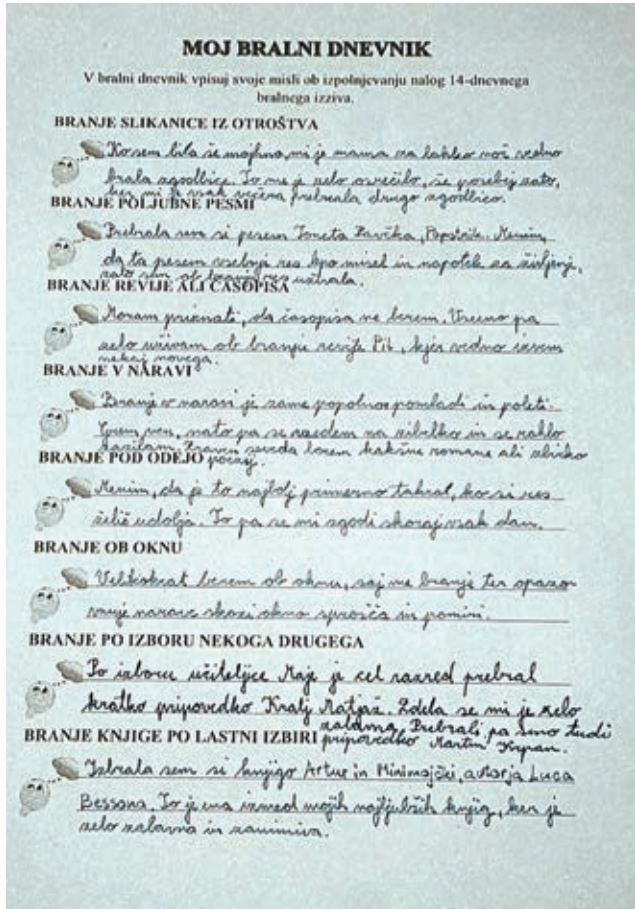 MOJ BRALNI DNEVNIK
V bralni dnevnik vpisuj svoje misli ob izpolnjevanju nalog 14-dnevnega
bralnega izziva.
BRANJE SLIKANICE IZ OTROŠTVA
Ko sem bila še majhna, mi je mama za lahko noč vedno
brala zgodbice. To me je zelo osrečilo, še posebej zato,
ker mi je vsak večer prebrala drugo zgodbico.
BRANJE POLJUBNE PESMI
Prebrala sem si pesem Toneta Pavčka, Popotnik. Menim,
da ta pesem vsebuje res lepo misel in napotek za življenje,
zato sem ob branju res uživala.
BRANJE REVIJE ALI ČASOPISA
Moram priznati, da časopisa ne berem. Vseeno pa
zelo uživam ob branju revije Pil, kjer vedno izvem
nekaj novega.
BRANJE V NARAVI
Branje v naravi je zame popolno pomladi in poleti.
Grem ven, nato pa se usedem na in se rahlo
Zraven seveda berem kakšne romane ali zbirko
poezij.
BRANJE POD ODEJO
Menim, da je to najbolj primerno takrat, ko si res
želiš udobja. To pa se mi zgodi skoraj vsak dan.
BRANJE OB OKNU
Velikokrat berem ob oknu, saj me branje ter opazo-
vanje narave skozi okno sprošča in pomiri.
BRANJE PO IZBORU NEKOGA DRUGEGA
Po izboru učiteljice Maje je cel razred prebral
kratko pripovedko Kralj Matjaž. Zdela se mi je zelo
zabavna. Prebrali pa smo tudi
pripovedko Martin Krpan.
BRANJE KNJIGE PO LASTNI IZBIRI
Izbrala sem si knjigo Artur in Minimojčki, avtorja Luca
Bessona. To je ena izmed mojih najljubših knjig, ker je
zelo zabavna in zanimiva.